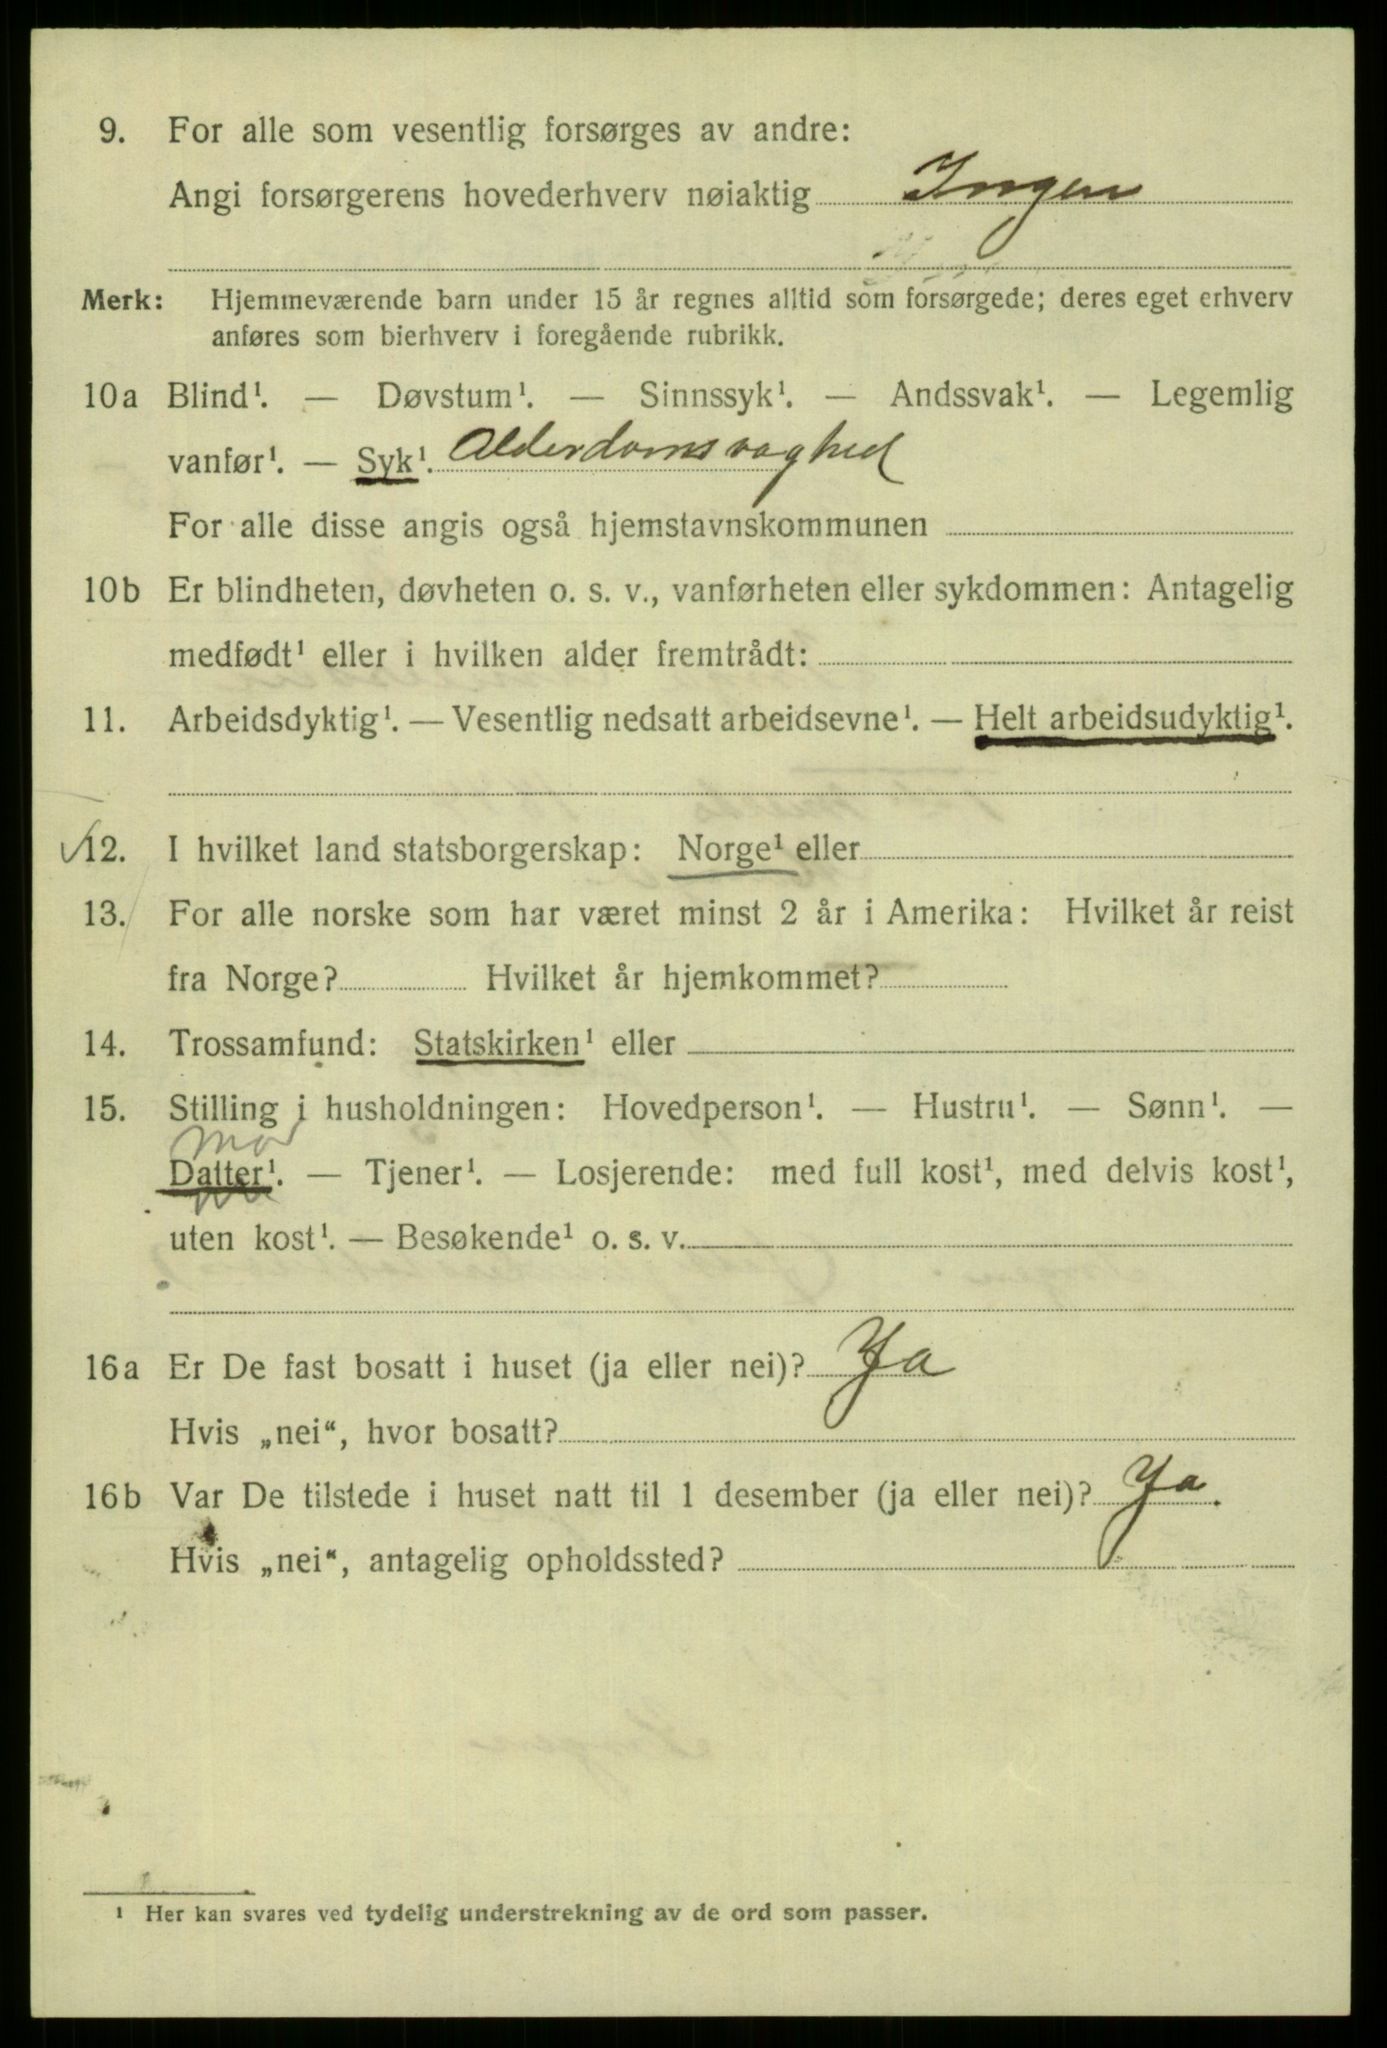 9. For alle som vesentlig forsørges av andre:
Angi forsørgerens hovederhverv nøiaktig Ingen
Merk: Hjemmeværende barn under 15 år regnes alltid som forsørgede; deres eget erhverv
anføres som bierhverv i foregående rubrikk.
10a Blind¹. — Døvstum¹. — Sinnssyk¹. — Andssvak¹. — Legemlig
vanfør¹. — Syk¹. Alderdomsvaghed
For alle disse angis også hjemstavnskommunen
10b Er blindheten, døvheten o. s. v., vanførheten eller sykdommen: Antagelig
medfødt¹ eller i hvilken alder fremtrådt:
11. Arbeidsdyktig¹. — Vesentlig nedsatt arbeidsevne¹. — Helt arbeidsudyktig¹.
12. I hvilket land statsborgerskap: Norge¹ eller
13. For alle norske som har været minst 2 år i Amerika: Hvilket år reist
fra Norge? Hvilket år hjemkommet?
14. Trossamfund: Statskirken¹ eller
15. Stilling i husholdningen: Hovedperson¹. — Hustru¹. — Sønn¹. —
mor
Datter¹. — Tjener¹. — Losjerende: med full kost¹, med delvis kost¹,
uten kost¹. — Besøkende¹ o. s. v.
16a Er De fast bosatt i huset (ja eller nei)? Ja
Hvis „nei“, hvor bosatt?
16b Var De tilstede i huset natt til 1 desember (ja eller nei)? Ja.
Hvis „nei“, antagelig opholdssted?
¹ Her kan svares ved tydelig understrekning av de ord som passer.